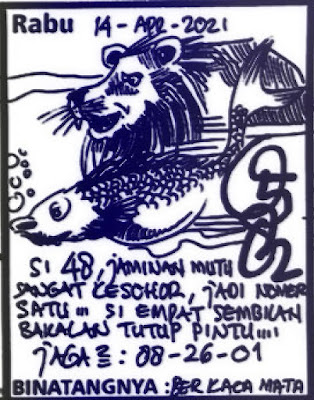 Rabu 14-APR-2021
SI 48, JAMINAN MUTU
SANGAT KESOHOR, JADI NOMER
SATU !!! SI EMPAT SEMBILAN
BAKALAN TUTUP PINTU !!!!
JAGA 2 : 88-26-01
BINATANGNYA : BER KACA MATA